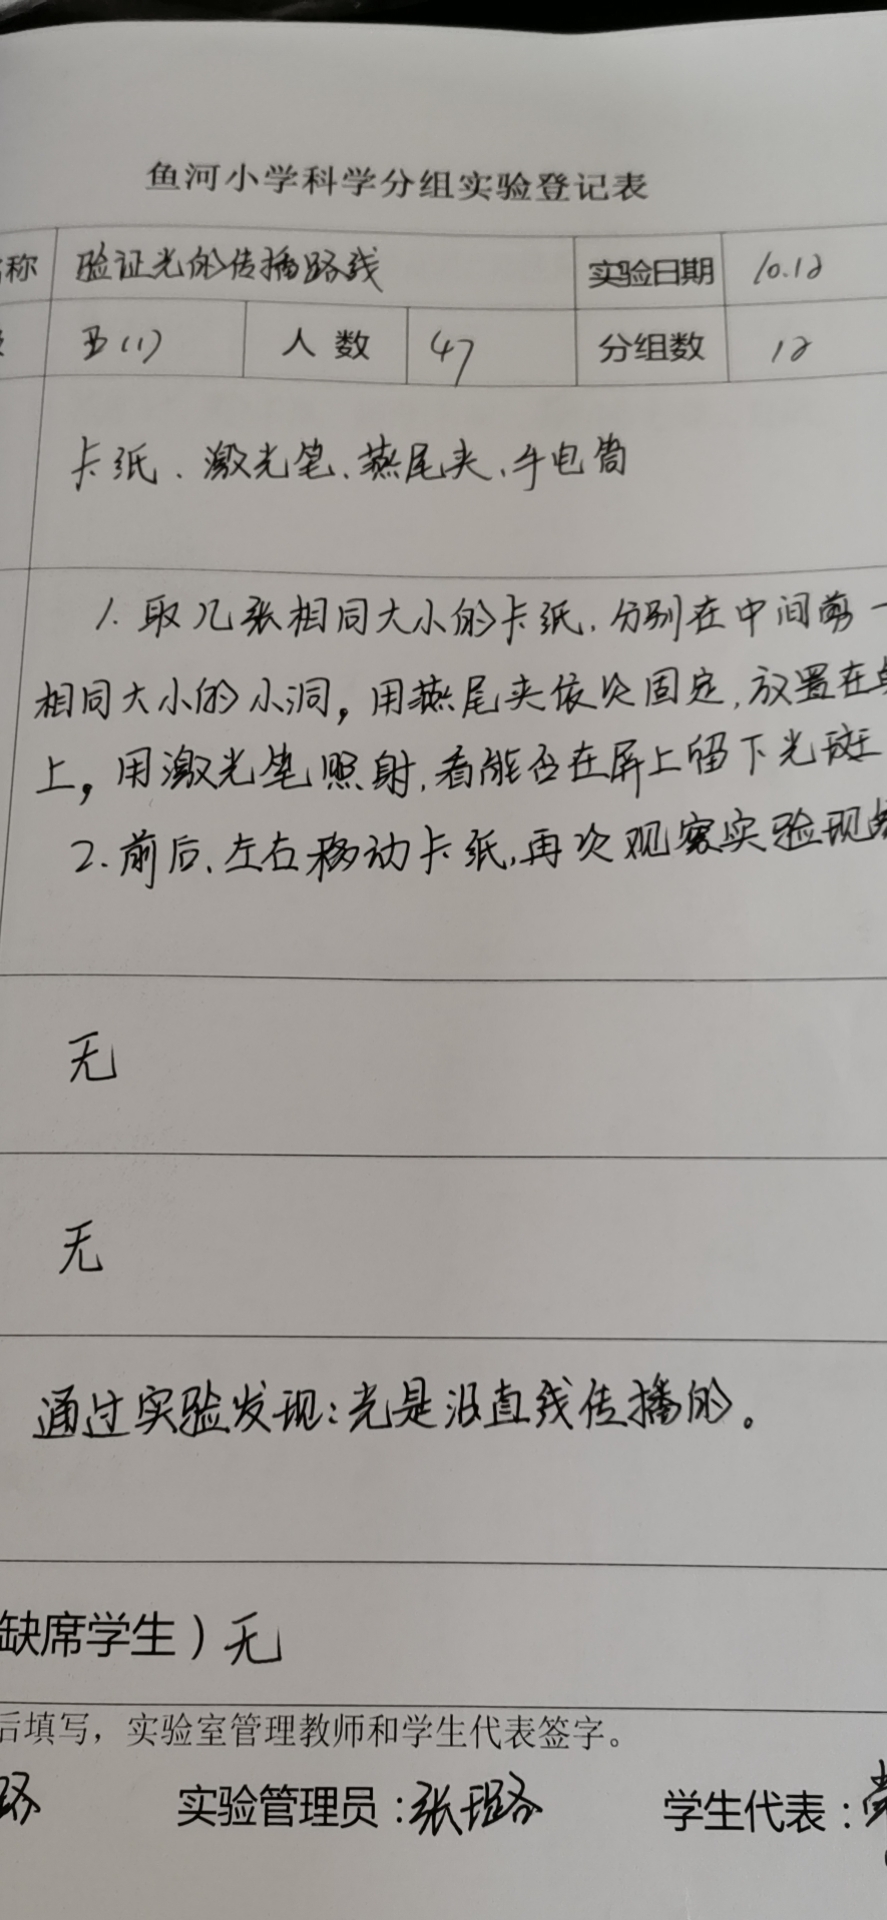 鱼河小学科学分组实验登记表
称 验证光的传播路线 实验日期 10.12
五(1) 人数 47 分组数 12
卡纸、激光笔、燕尾夹、手电筒
1. 取几张相同大小的卡纸,分别在中间剪一
相同大小的小洞,用燕尾夹依次固定,放置在
上,用激光笔照射,看能否在屏上留下光斑
2. 前后、左右移动卡纸,再次观察实验现
无
无
通过实验发现:光是沿直线传播的。
缺席学生)无
后填写,实验室管理教师和学生代表签字。
实验管理员:张璐 学生代表: